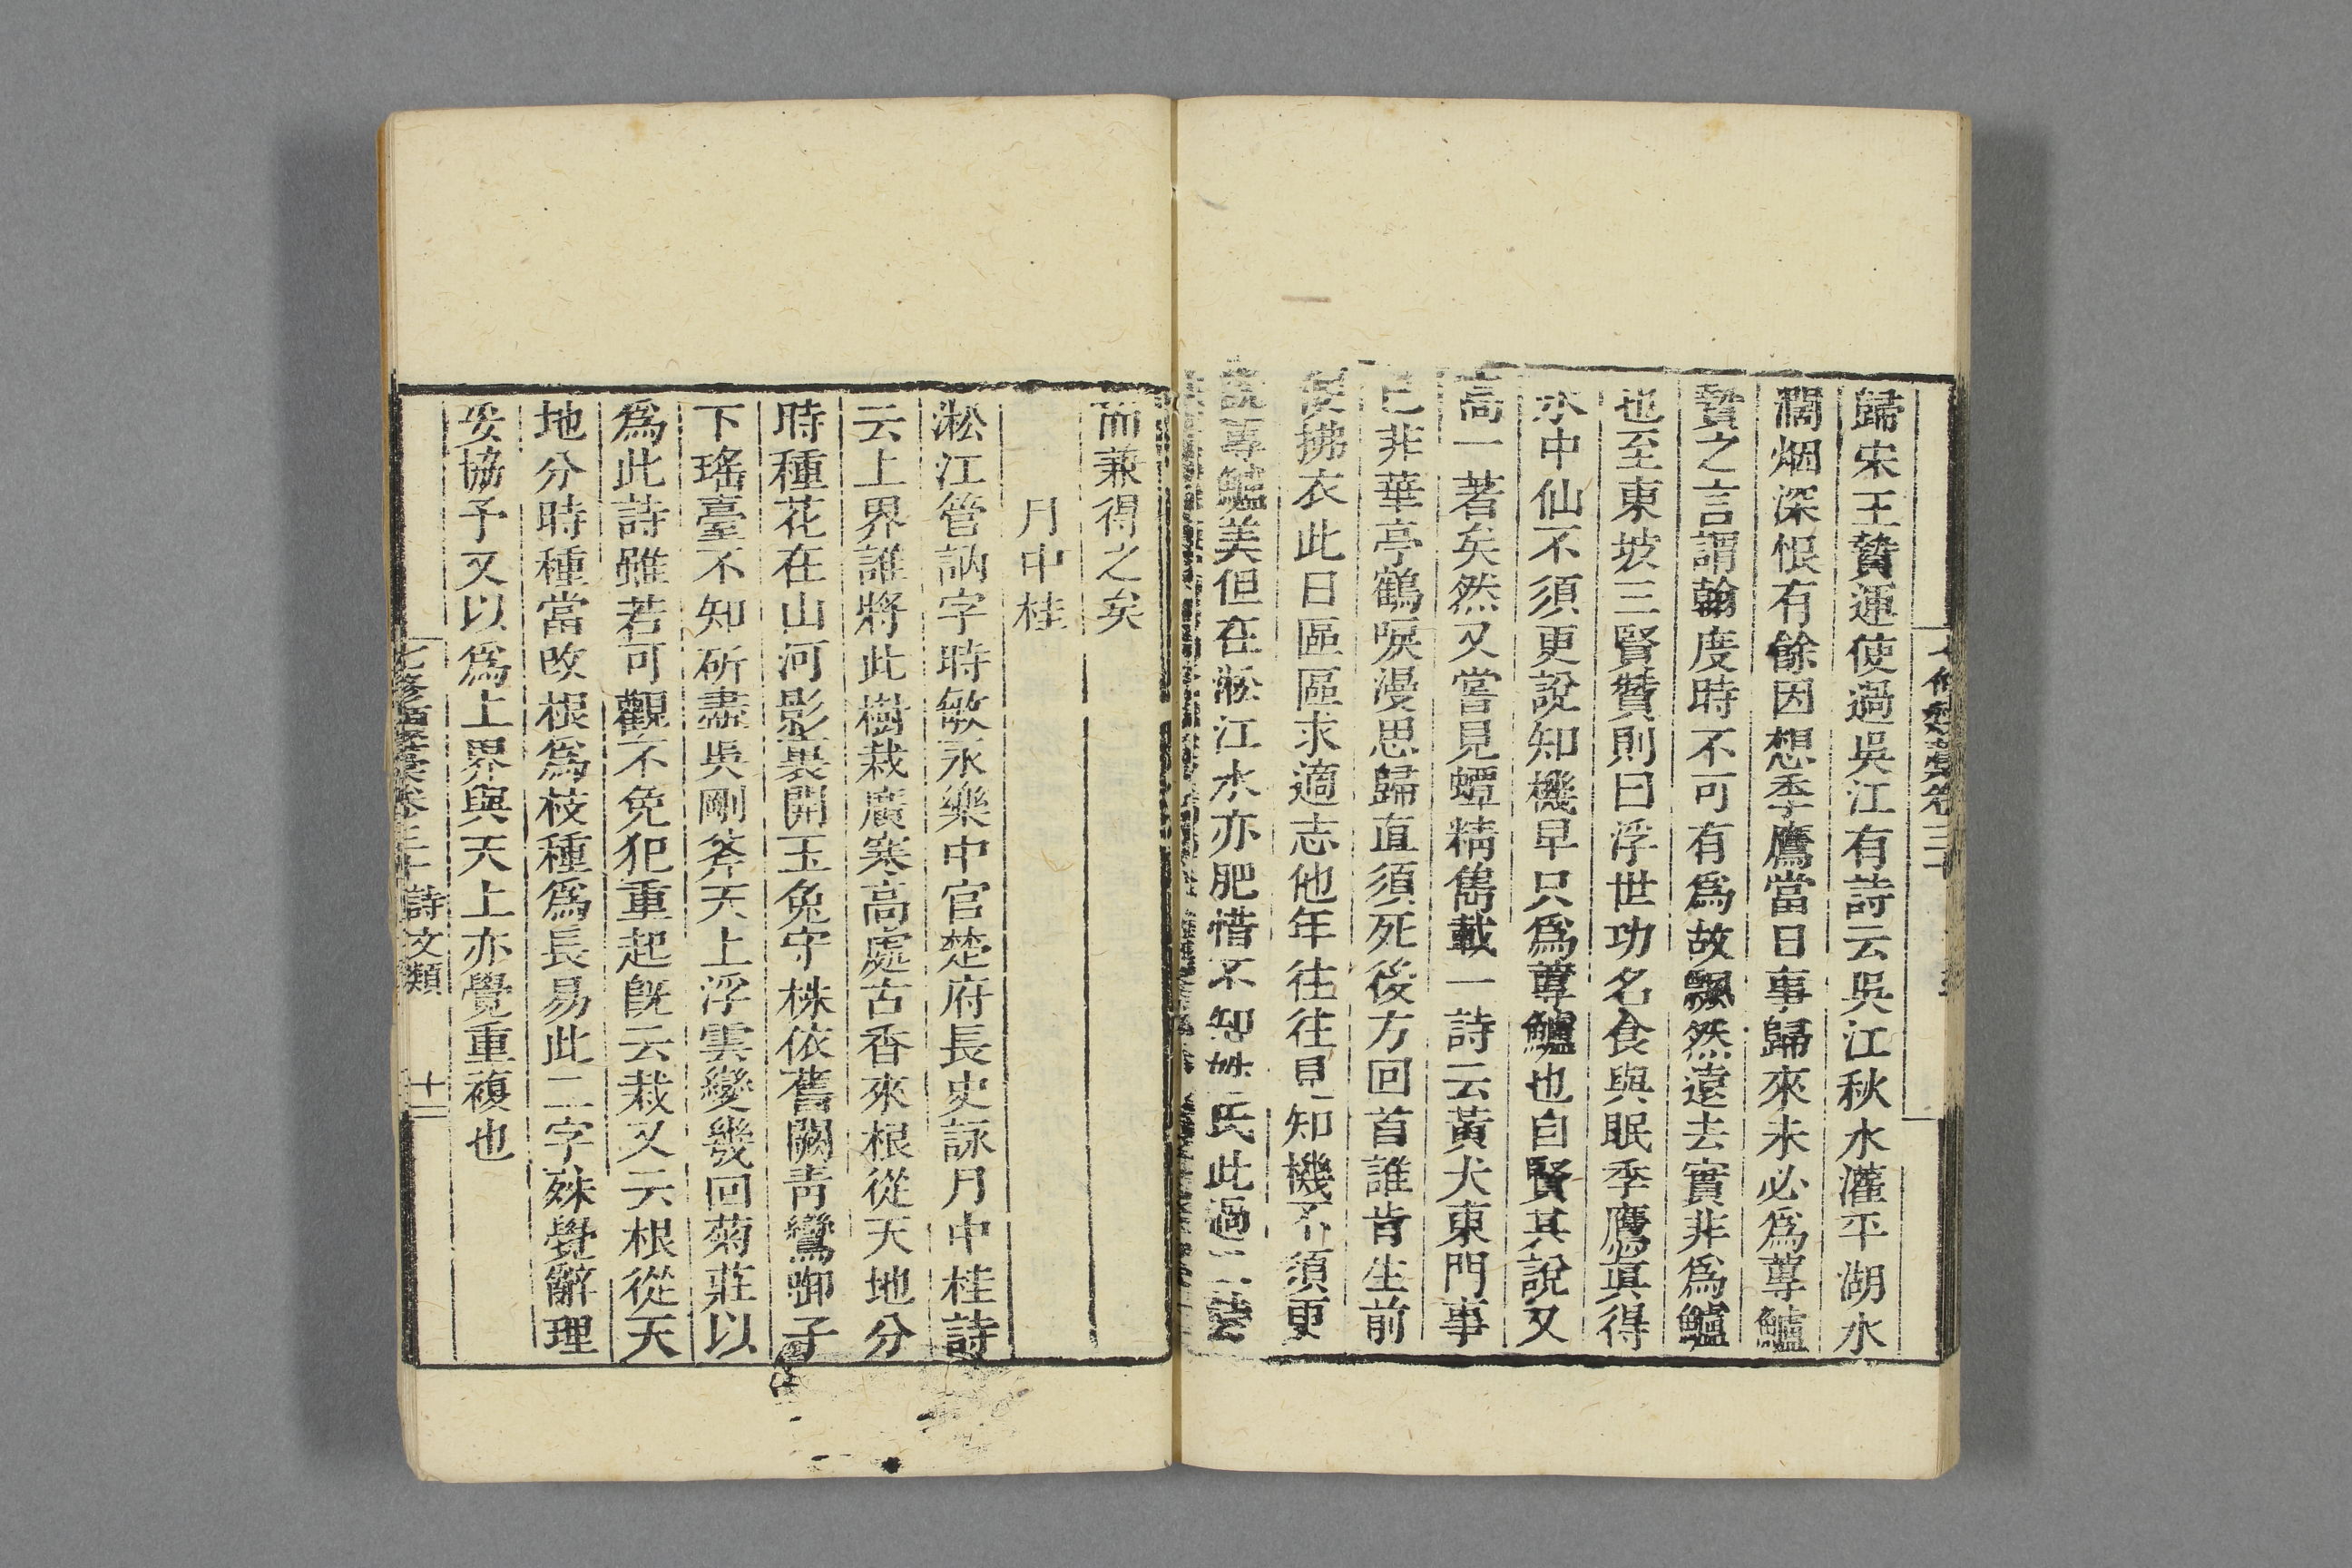 歸宋王贄運使過吳江有詩云吳江秋水灌平湖水
濶烟深恨有餘因想季鷹當日事歸來未必爲蓴鱸
贄之言謂翰度時不可有爲故飄然遠去實非爲鱸
也至東坡三賢贊則曰浮世功名食與眠季鷹眞得
水中仙不須更說知機早只爲蓴鱸也自賢其說又
高一著矣然又嘗見蟫精雋載一詩云黃犬東門事
已非華亭鶴唳漫思歸直須死後方回首誰肯生前
便拂衣此日區區求適志他年往往見知機不須更
說蓴鱸美但在淞江水亦肥惜不知姓氏此過二詩
而兼得之矣
月中桂
淞江管訥字時敏永樂中官楚府長史詠月中桂詩
云上界誰將此樹栽廣寒高處古香來根從天地分
時種花在山河影裏開玉兔守株依舊闕靑鸞啣子
下瑤臺不知斫盡吳剛斧天上浮雲變幾回菊莊以
爲此詩雖若可觀不免犯重起旣云栽又云根從天
地分時種當改根爲枝種爲長易此二字殊覺辭理
妥協予又以爲上界與天上亦覺重複也
七修類藁卷三十 詩文類 十二